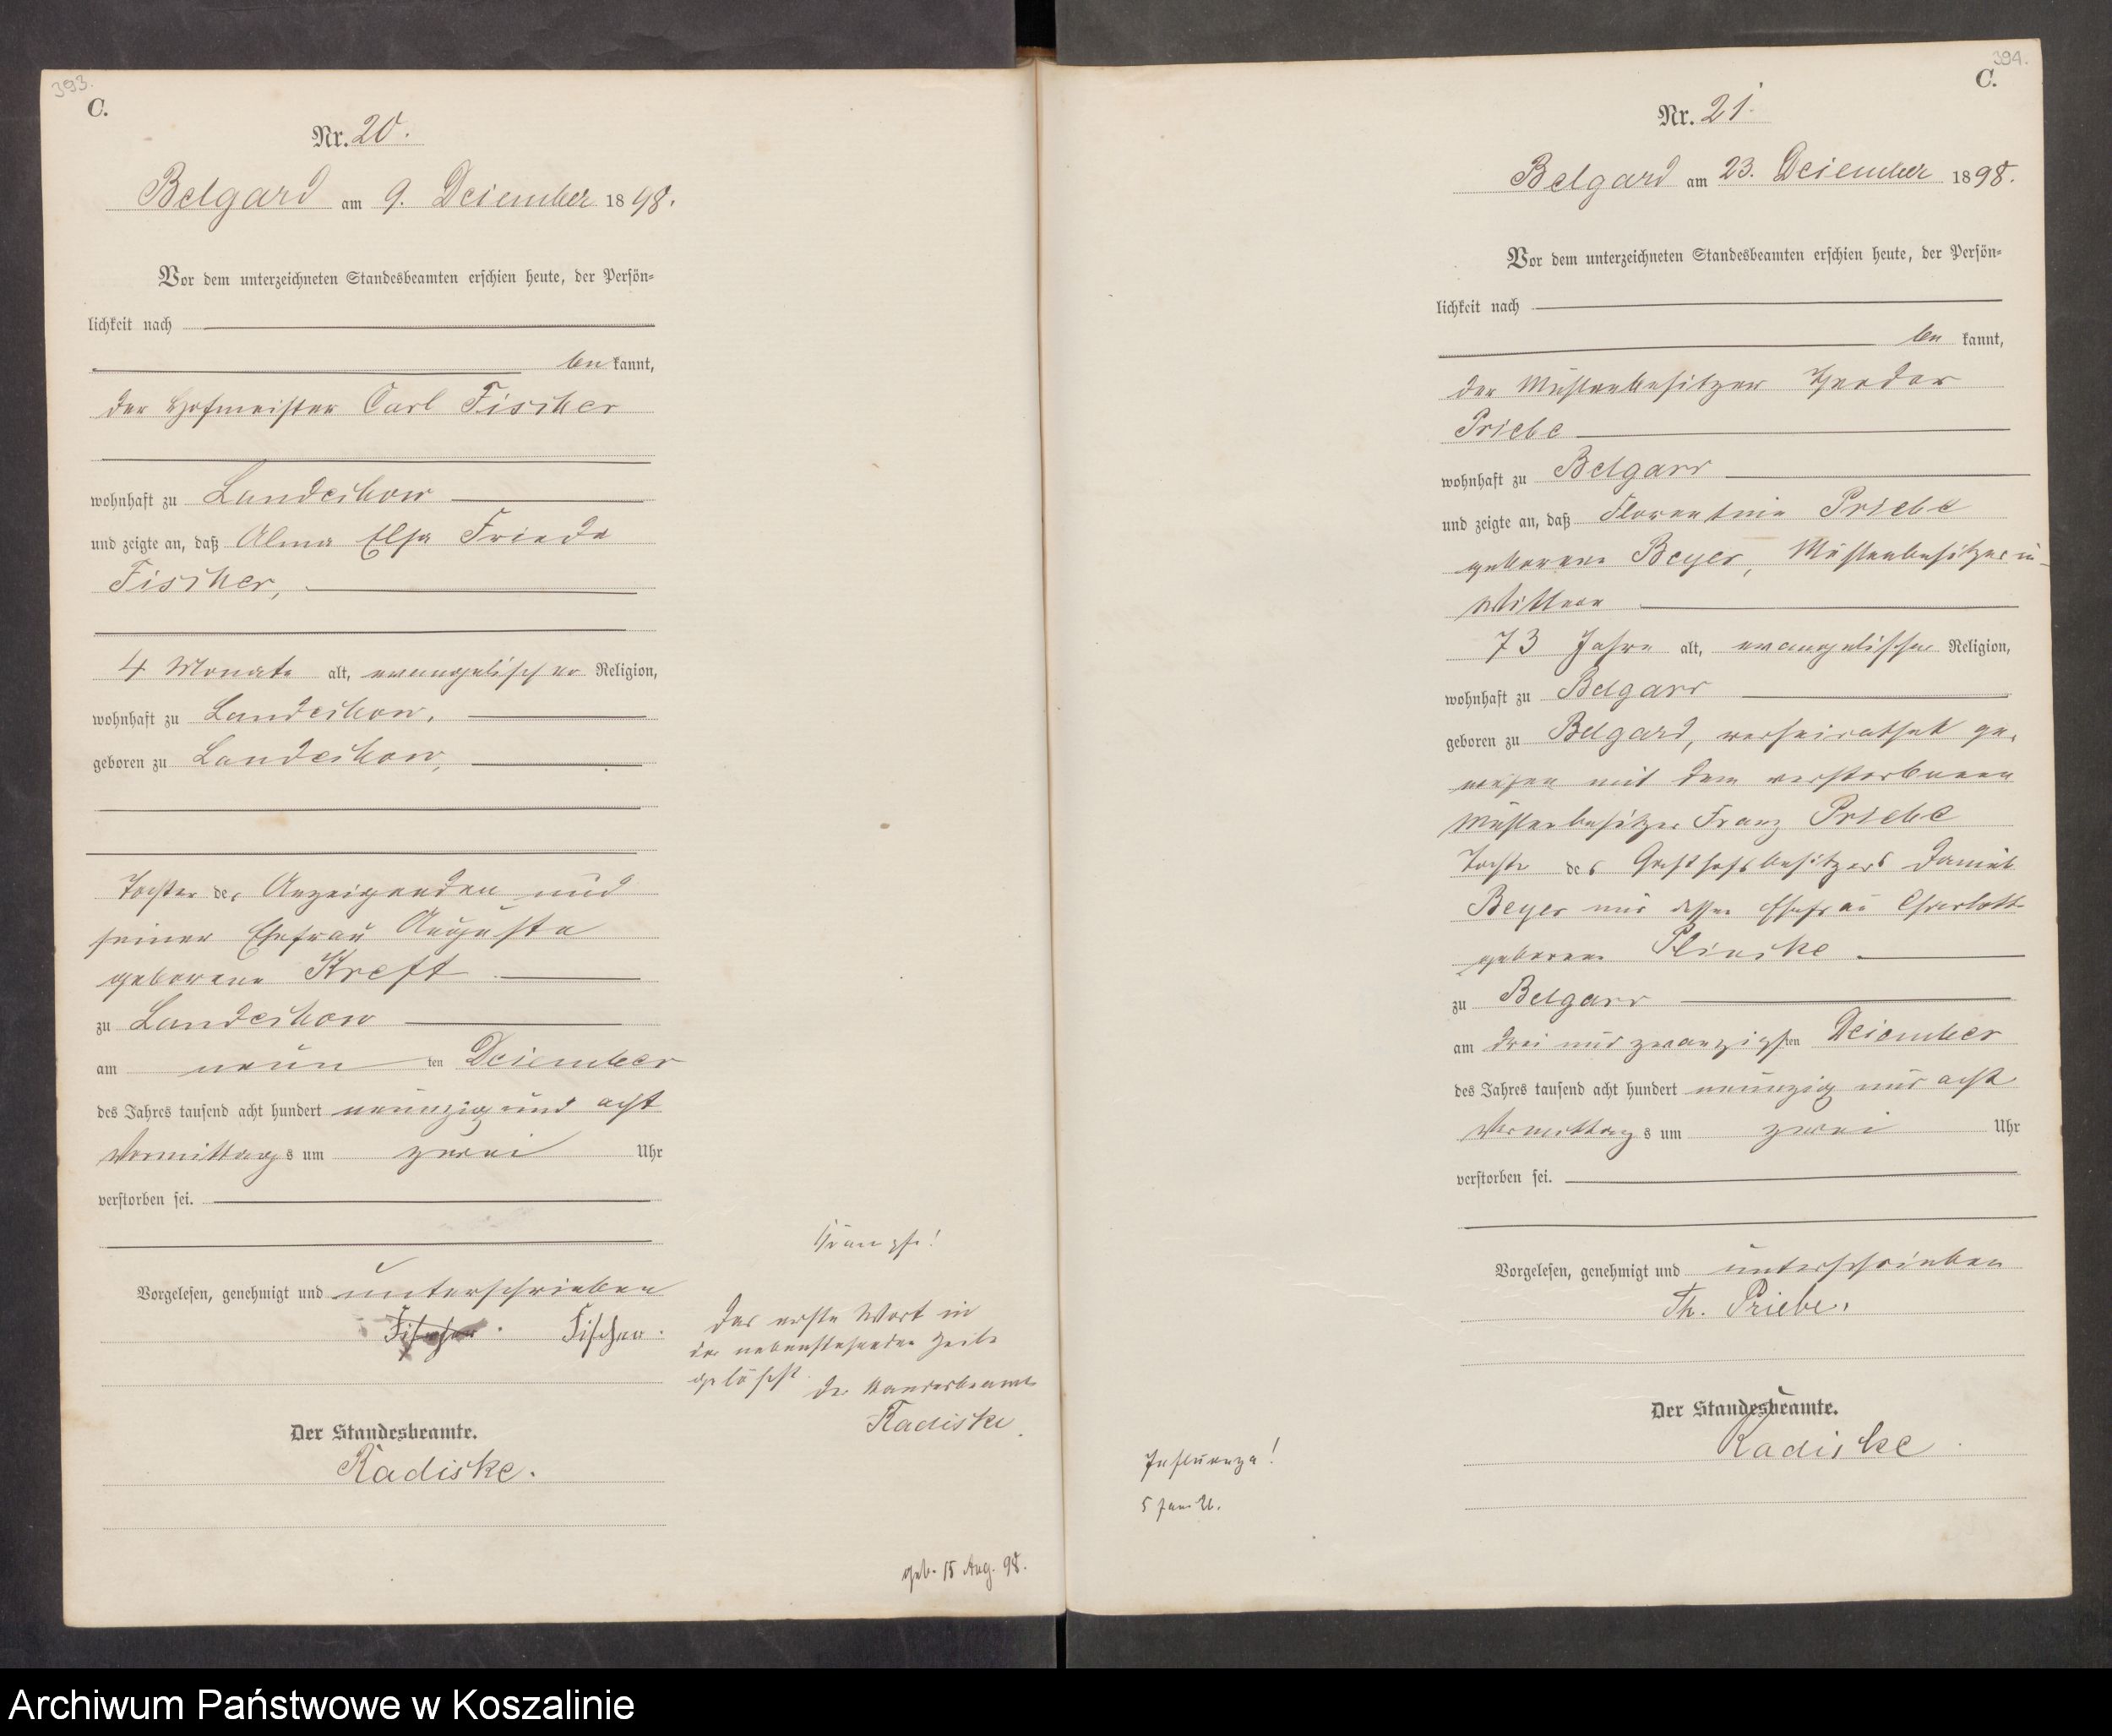 393.
C.
Nr. 20.
Belgard am 9. December 1898.
Vor dem unterzeichneten Standesbeamten erschien heute, der Persön-
lichkeit nach
be kannt,
der Hofmeister Carl Fischer
wohnhaft zu Landechow
und zeigte an, daß Alma Elsa Frieda
Fischer,
4 Monate alt, evangelischer Religion,
wohnhaft zu Landechow,
geboren zu Landechow,
Tochter des Anzeigenden und
seiner Ehefrau Auguste
geborene Kreft
zu Landechow
am neun ten December
des Jahres tausend acht hundert neunzig und acht
Vormittags um zwei Uhr
verstorben sei.
Vorgelesen, genehmigt und unterschrieben
Fischer. Fischer.
Der Standesbeamte.
Radiske.
Krämpfe!
Das erste Wort in
der nebenstehenden Zeile
gelöscht.
Der Standesbeamte
Radiske.
geb. 15 Aug. 98.
394.
C.
Nr. 21.
Belgard am 23. December 1898.
Vor dem unterzeichneten Standesbeamten erschien heute, der Persön-
lichkeit nach
be kannt,
der Mühlenbesitzer Theodor
Priebe
wohnhaft zu Belgard
und zeigte an, daß Florentine Priebe
geborene Beyer, Mühlenbesitzerin-
Wittwe
73 Jahre alt, evangelischer Religion,
wohnhaft zu Belgard
geboren zu Belgard, verheirathet ge-
wesen mit dem verstorbenen
Mühlenbesitzer Franz Priebe
Tochter des Gasthofsbesitzers Daniel
Beyer und dessen Ehefrau Charlotte
geborene Plinske
zu Belgard
am drei und zwanzigsten December
des Jahres tausend acht hundert neunzig und acht
Vormittags um zwei Uhr
verstorben sei.
Vorgelesen, genehmigt und unterschrieben
Th. Priebe.
Der Standesbeamte.
Radiske
Influenza!
Archiwum Państwowe w Koszalinie